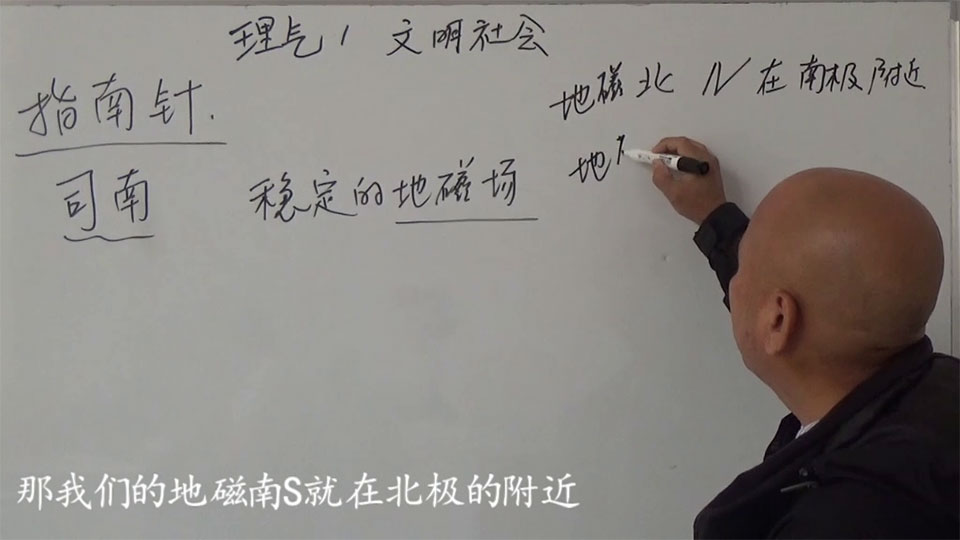 理气1 文明社会
指南针.
地磁北 N 在南极附近
司南 稳定的地磁场
地
那我们的地磁南S就在北极的附近